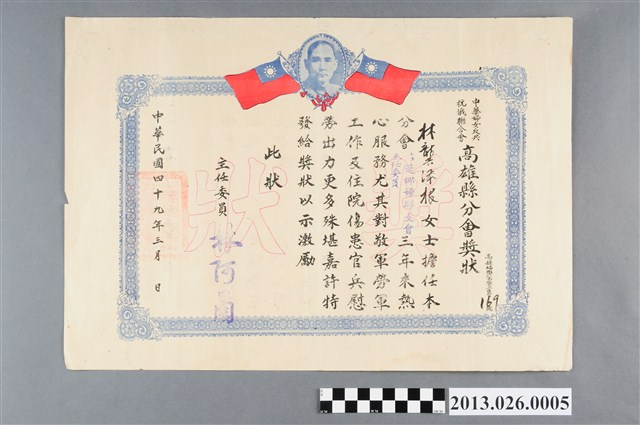 中華婦女反共
抗俄聯合會
高雄縣分會獎狀
169
林龔深根女士擔任本
分會
支會
三年來熱
心服務尤其對敬軍勞軍
工作及住院傷患官兵慰
勞出力更多殊堪嘉許特
發給獎狀以示激勵
此狀
主任委員
中華民國四十九年三月 日
獎狀
2013.026.0005